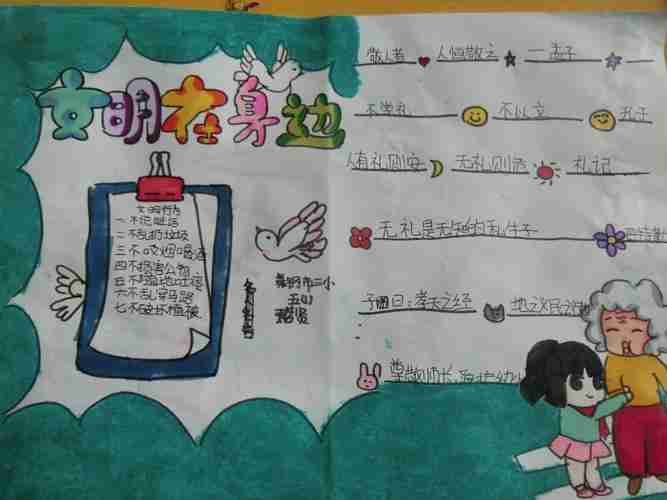 文明在身边
文明行为
一不说脏话
二不乱扔垃圾
三不吸烟喝酒
四不损害公物
五不随地吐痰
六不乱穿马路
七不破坏植被
舞钢市二小
五(1)
敬人者 人恒敬之 一孟子
不学礼 不以立 孔子
人有礼则安 无礼则危 礼记
无礼是无知的私生子
子曰:孝天之经 地之义民之
尊敬师长,爱护幼小